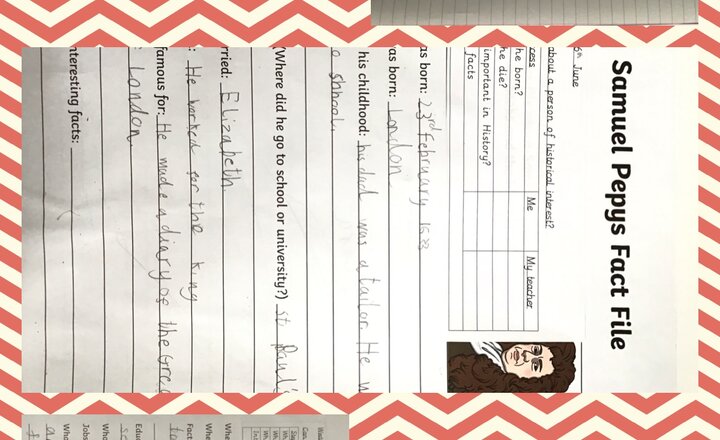 Samuel Pepys Fact File
6th June
about a person of historical interest?
cess Me My teacher
he born?
he die?
important in History?
facts
as born: 23rd February
as born: London
his childhood: his dad was a tailor. He w
o shhool.
(Where did he go to school or university?) st Paul's
rried: Elizabeth
: He worked for the king
famous for: He made a diary of the Grea
London
nteresting facts: